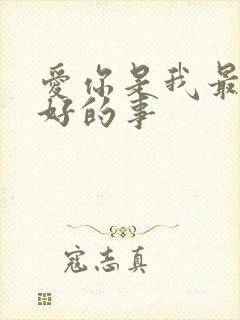 爱你是我最
好的事
寇志真